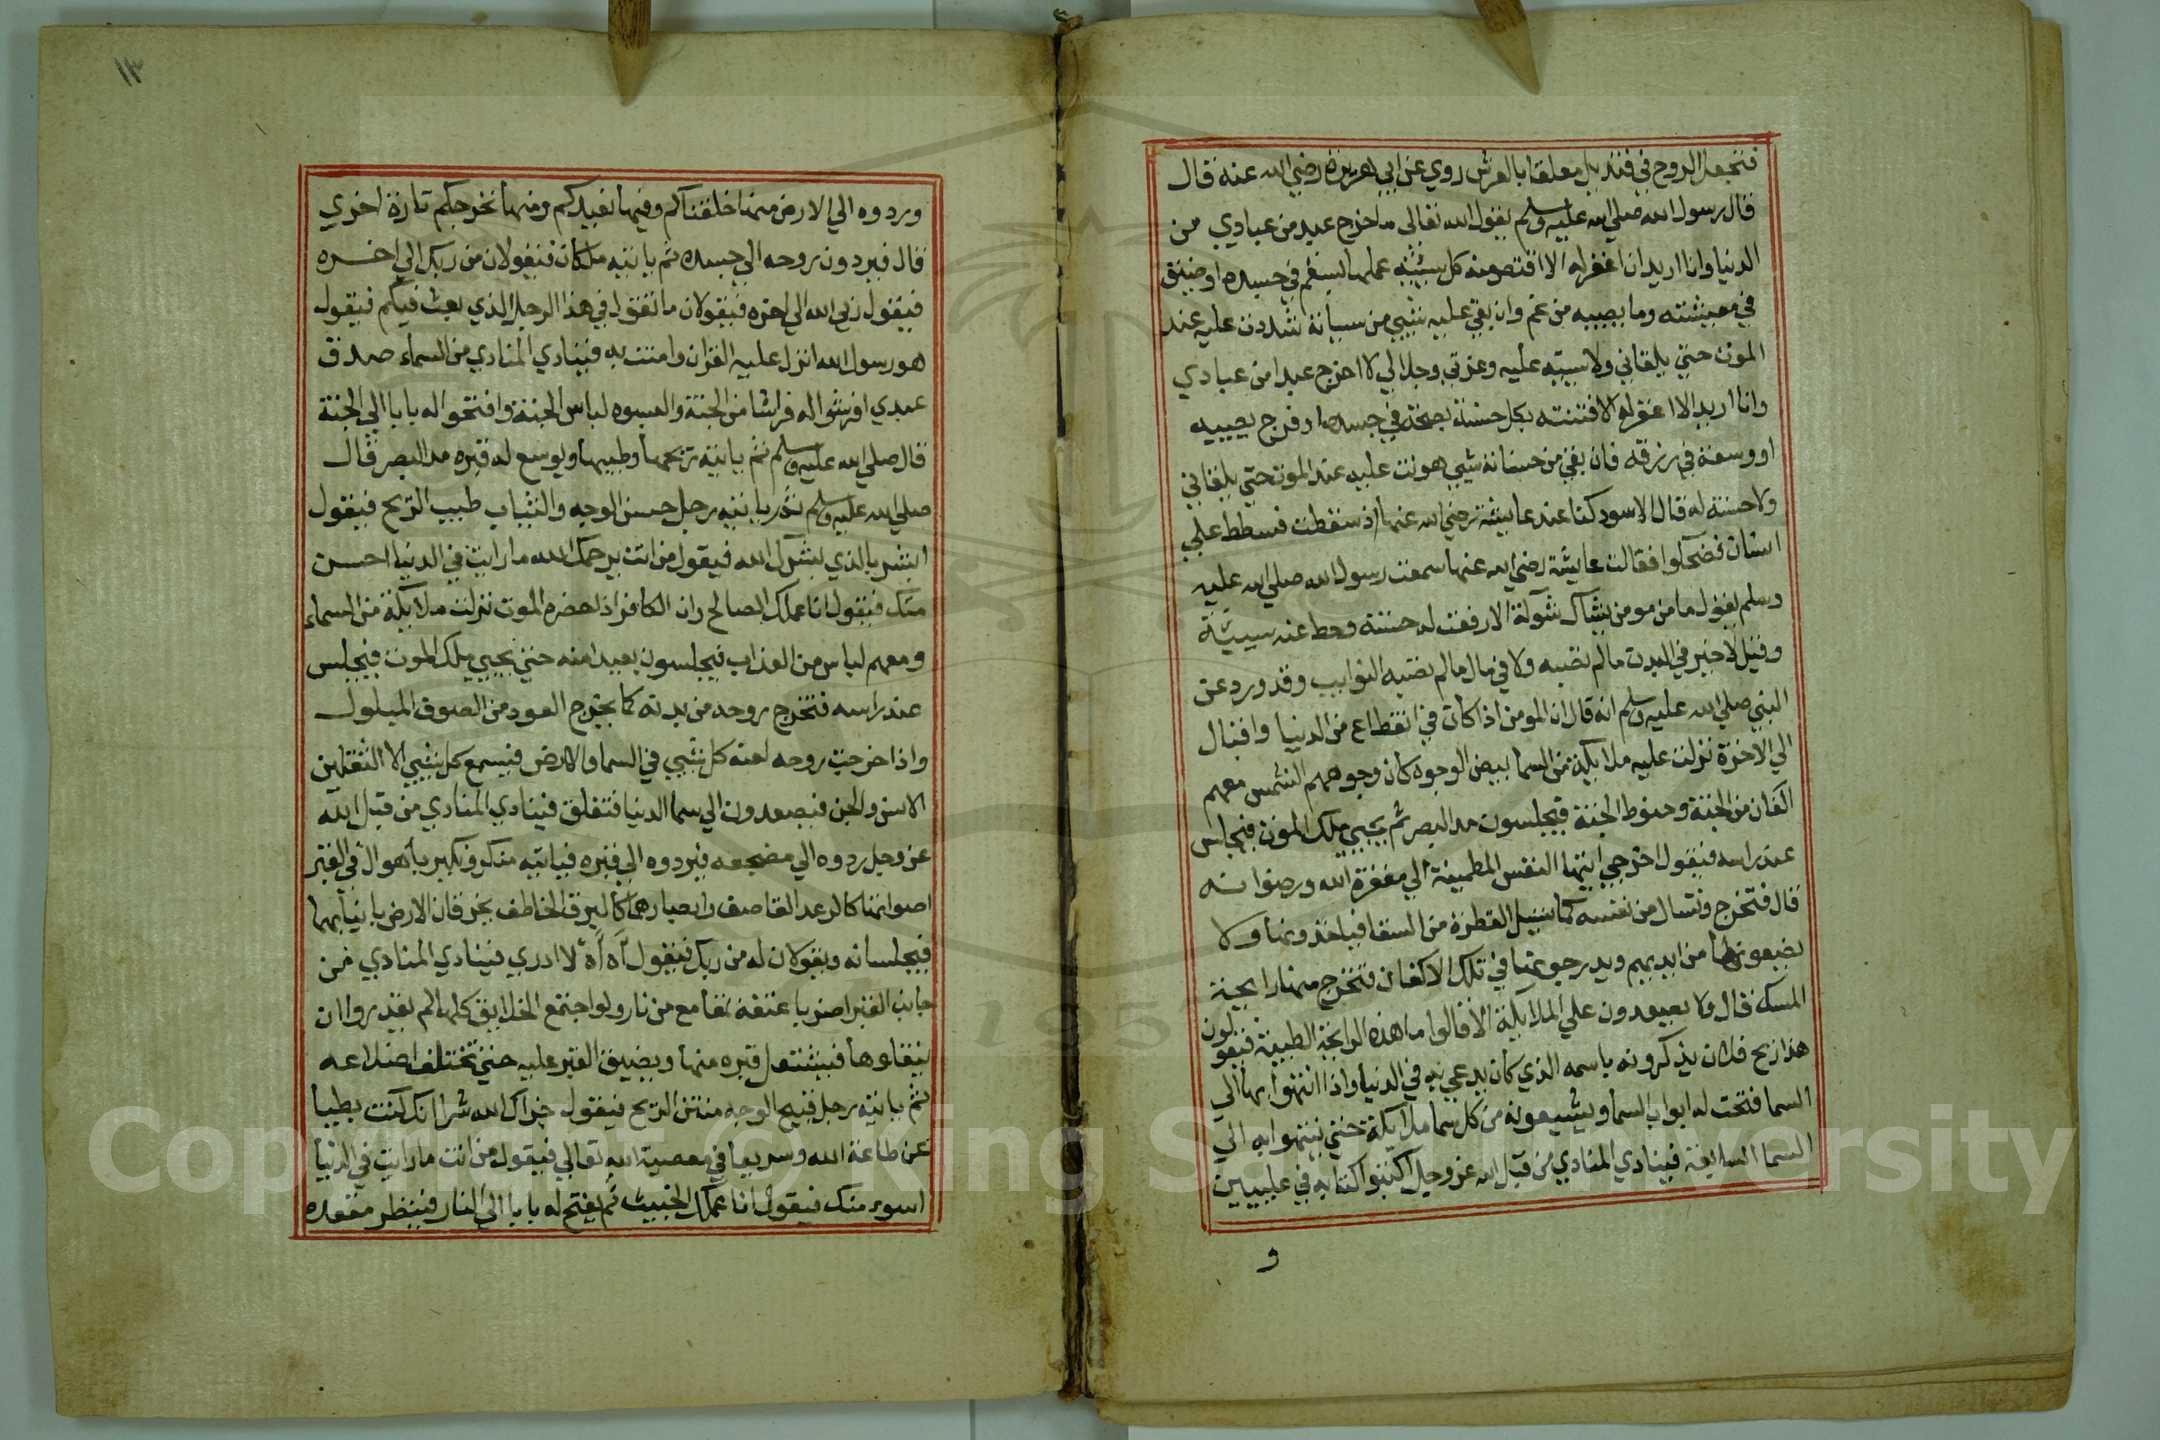 فتجعل الروح في قنديل معلقا بالعرش روي عن ابي هريرة رضي الله عنه قال
قال رسول الله صلي الله عليه وسلم يقول الله تعالى ما اخرج عبد من عبادي من
الدنيا وانا اريد ان اغفر له الا اقتصصه كل سيئته عملها بسقم في جسده او ضيق
في معيشته وما يصيبه من غم وان بقي عليه شيي من سيياته شددت عليه عند
الموت حتي يلقاني ولا سيئه عليه وعزتي وجلالي لا اخرج عبدا من عبادي
وانا اريد الا اغفر له الا اقتنته بكل حسنة بصحة في جسده او فرج يصيبه
او وسعة في رزقه فان بقي من حسناته شيي هونت عليه عند الموت حتي يلقاني
ولا حسنة له قال الاسود كنا عند عايشة رضي الله عنها اذ سقطت فسطط علي
انسان فضحكوا فقالت عايشة رضي الله عنها سمعت رسول الله صلي الله عليه
وسلم يقول ما من مومن يشاك شوكة الا رفعت له حسنة وحط عنه سييئة
وقيل لا خير في البدن ما لم تصبه ولا في مال ما لم تصبه النوايب وقد ورد عن
النبي صلي الله عليه وسلم انه قال ان المومن اذا كان في انقطاع من الدنيا واقبال
الي الاخرة نزلت عليه ملايكة من السما بيض الوجوه كان وجوههم الشمس معهم
اكفان من الجنة وحنوط الجنة فيجلسون مد البصر ثم يجيي ملك الموت فيجلس
عند راسه فيقول اخرجي ايتها النفس المطمينة الي مغفرة الله ورضوانه
قال فتخرج وتسال من نفسه كما تسيل القطرة من السقا فياخذونها ولا
يضعونها من ايديهم ويدرجونها في تلك الاكفان فتخرج منها رايحة
المسك قال ولا يصعدون علي الملايكة الا قالوا ما هذه الرايحة الطيبة فيقولون
هذا ريح فلان يذكرونه باسمه الذي كان يدعي به في الدنيا واذا انتهوا بها الي
السما فتحت له ابواب السما ويشيعونه من كل سما ملايكة حتي ينتهوا به الي
السما السابعة فينادي المنادي من قبل الله عز وجل اكتبوا كتابه في عليين
و
١٣
وردوه الي الارض منها خلقناكم وفيها نعيدكم ومنها نخرجكم تارة اخري
قال فيردون روحه الي جسده ثم ياتيه ملكان فيقولان من ربك الي اخره
فيقول ربي الله الي اخره فيقولان ما تقول في هذا الرجل الذي بعث فيكم فيقول
هو رسول الله انزل عليه القران وامنت به فينادي المنادي من السماء صدق
عبدي افرشوا له فراشا من الجنة والبسوه لباس الجنة وافتحوا له بابا الي الجنة
قال صلي الله عليه وسلم ثم ياتيه ريحها وطيبها ويوسع له قبره مد البصر قال
صلي الله عليه وسلم ثم ياتيه رجل حسن الوجه والثياب طيب الريح فيقول
ابشر بالذي بشرك الله فيقول من انت يرحمك الله ما رايت في الدنيا احسن
منك فيقول انا عملك الصالح وان الكافر اذا حضره الموت نزلت ملايكة من السماء
ومعهم لباس من العذاب فيجلسون بعيدا منه حتي يجيي ملك الموت فيجلس
عند راسه فتخرج روحه من بدنه كما يخرج العود من الصوف المبلول
واذا خرجت روحه لعنه كل شيي في السما والارض فيسمع كل شيي الا الثقلين
الانس والجن فيصعدون الي سما الدنيا فتغلق فينادي المنادي من قبل الله
عز وجل ردوه الي مضجعه فيردوه الي قبره فياتيه منكر ونكير باهوال في القبر
اصواتهما كالرعد القاصف وابصارهما كالبرق الخاطف يخرقان الارض بانيابهما
فيجلسانه ويقولان له من ربك فيقول اه اه لا ادري فينادي المنادي من
جانب القبر اضربا عنقه بمقامع من نار ولو اجتمع الخلايق كلها لم يقدروا ان
ينقلوها فيشتعل قبره منها ويضيق القبر عليه حتي تختلف اضلاعه
ثم ياتيه رجل قبيح الوجه منتن الريح فيقول جزاك الله شرا انك كنت بطيا
عن طاعة الله وسريعا في معصية الله تعالي فيقول من انت ما رايت في الدنيا
اسوء منك فيقول انا عملك الخبيث ثم يفتح له بابا الي النار فينظر مقعده
Copyright © King Saud University